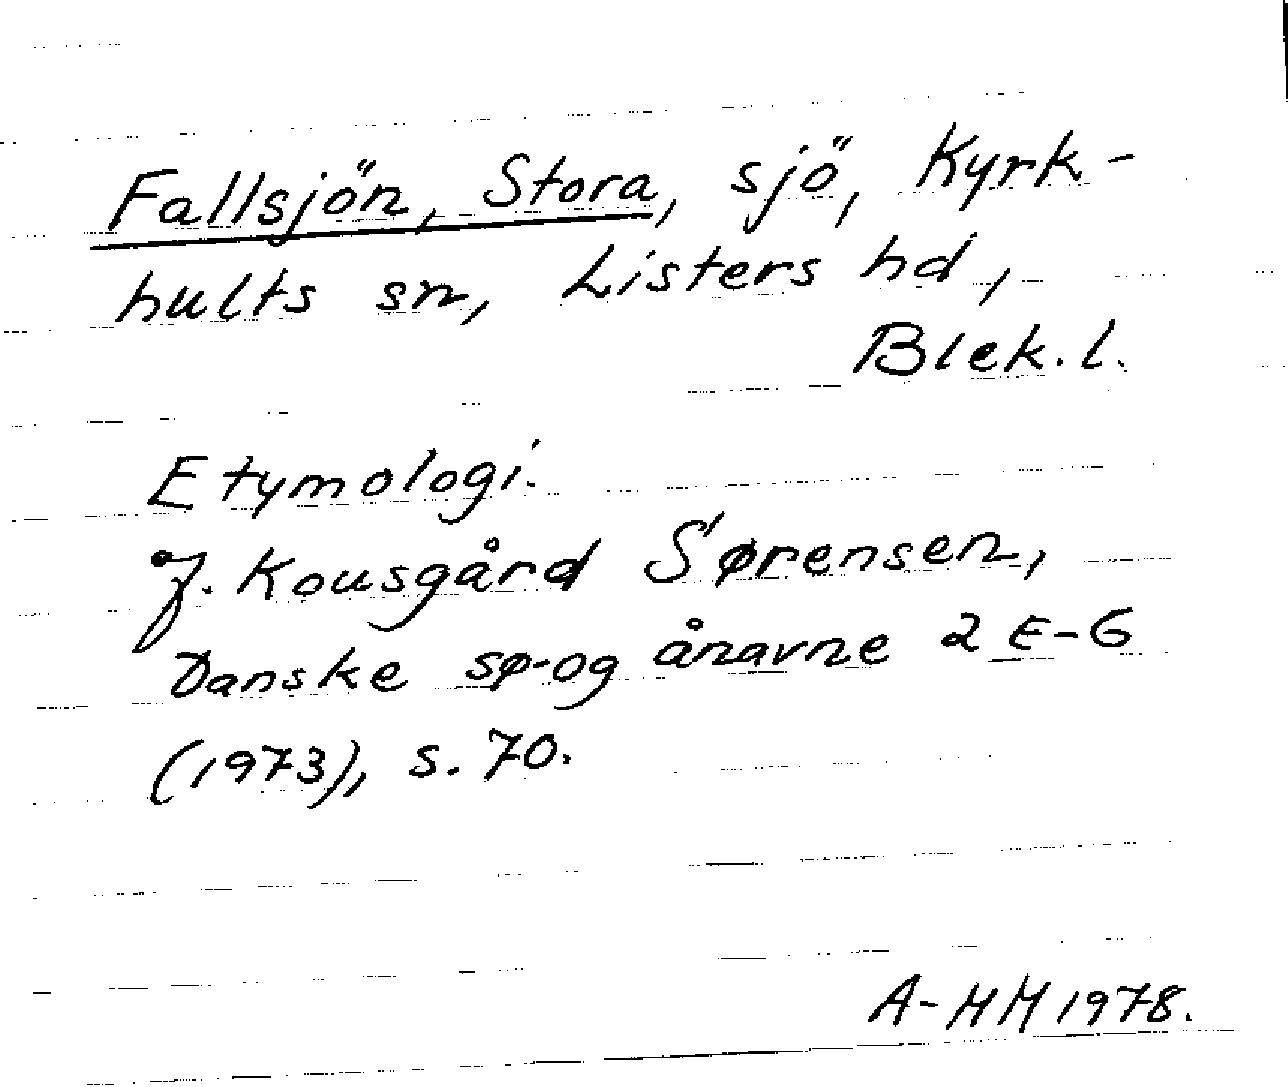 Fallsjön, Stora, sjö, Kyrk-
hults sn, Listers hd,
Blek. l.
Etymologi.
J. Kousgård Sørensen,
Danske sø-og ånavne 2 E-G
(1973), s. 70.
A-HH 1978.